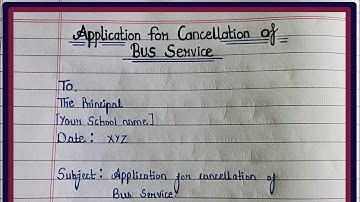 Application for Cancellation of
Bus Service
To,
The Principal
[Your School name]
Date: XYZ
Subject: Application for cancellation of
Bus Service